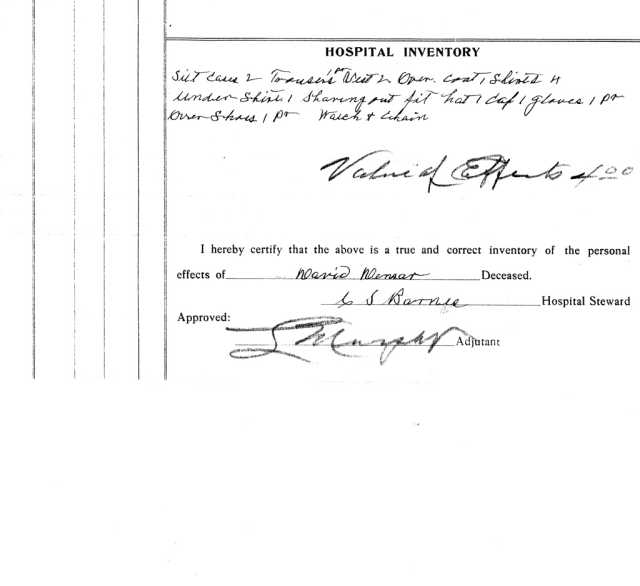 HOSPITAL INVENTORY
Suit Case 2 Trousers 1 Pr Vest 2 Over. Coat 1 Shirts 4
Under Shirt 1 Shaving out fit hat 1 Cap 1 gloves 1 Pr
Over Shoes 1 Pr Watch & Chain
Value of Effects 4 00
I hereby certify that the above is a true and correct inventory of the personal
effects of David Deceased.
C S Barnes Hospital Steward
Approved:
Murphy Adjutant